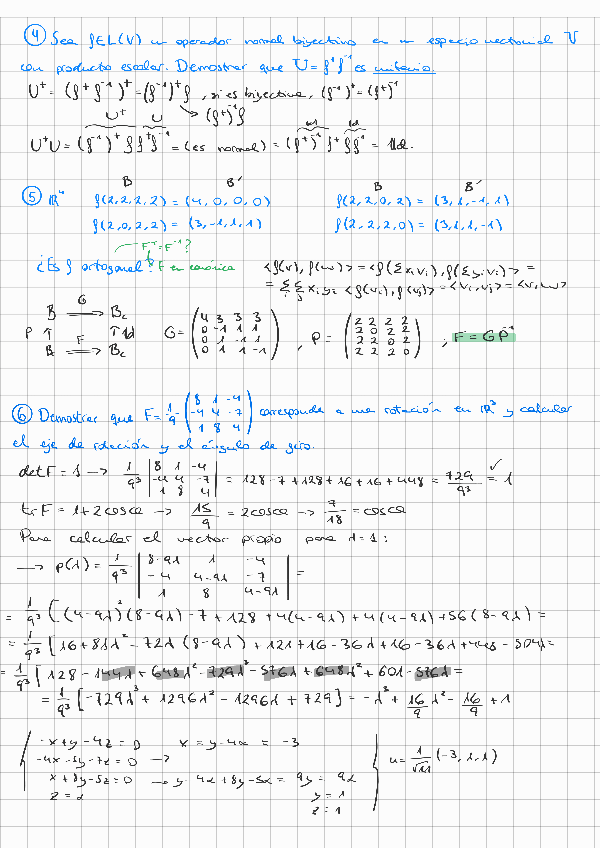 ④ Sea f∈L(V) un operador normal biyectivo en un espacio vectorial V
con producto escalar. Demostrar que U=f⁺f⁻¹ es unitario.
U⁺ = (f⁺f⁻¹)⁺ = (f⁻¹)⁺f , si es biyectiva, (f⁻¹)⁺ = (f⁺)⁻¹
→ (f⁺)⁻¹f
U⁺ U
U⁺U = (f⁻¹)⁺ f f⁺ f⁻¹ = (es normal) = (f⁺)⁻¹ f⁺ f f⁻¹ = Id.
B B' B B'
⑤ ℝ⁴ f(2,2,2,2) = (4,0,0,0) f(2,2,0,2) = (3,1,-1,1)
f(2,0,2,2) = (3,-1,1,1) f(2,2,2,0) = (3,1,1,-1)
¿Es f ortogonal? F en canónica <f(v), f(w)> = <f(Σxᵢvᵢ), f(Σyᵢvᵢ)> =
= ΣΣ xᵢyⱼ <f(vᵢ), f(vⱼ)> = <vᵢ,vⱼ> = <v,w>
B G→ B_c
P ↑ F ↑Id
B → B_c
G = (4 3 3 3
0 -1 1 1
0 1 -1 1
0 1 1 -1) , P = (2 2 2 2
2 0 2 2
2 2 0 2
2 2 2 0) ; F = GP⁻¹
⑥ Demostrar que F = 1/9 (8 1 -4
-4 4 -7
1 8 4) corresponde a una rotación en ℝ³ y calcular
el eje de rotación y el ángulo de giro.
det F = 1 → 1/9³ |8 1 -4
-4 4 -7
1 8 4| = 128-7+128+16+16+448 = 729/9³ = 1 ✓
tr F = 1+2cosα → 15/9 = 2cosα → 7/18 = cosα
Para calcular el vector propio para λ=1:
→ p(λ) = 1/9³ |8-9λ 1 -4
-4 4-9λ -7
1 8 4-9λ| =
= 1/9³ [(4-9λ)²(8-9λ) -7 + 128 + 4(4-9λ) + 4(4-9λ) + 56(8-9λ) =
= 1/9³ [16+81λ²-72λ (8-9λ) + 121+16-36λ+16-36λ+448-504λ=
= 1/9³ [128-144λ+648λ²-729λ³-576λ+648λ²+601-576λ =
= 1/9³ [-729λ³+1296λ²-1296λ+729] = -λ³ + 16/9 λ² - 16/9 + 1
-x+y-4z=0 x = y-4α = -3
-4x-5y-7z=0 →
x+8y-5z=0 → y-4α+8y-5α = 9y = 9α
z=α y=1
z=1
u = 1/√11 (-3,1,1)